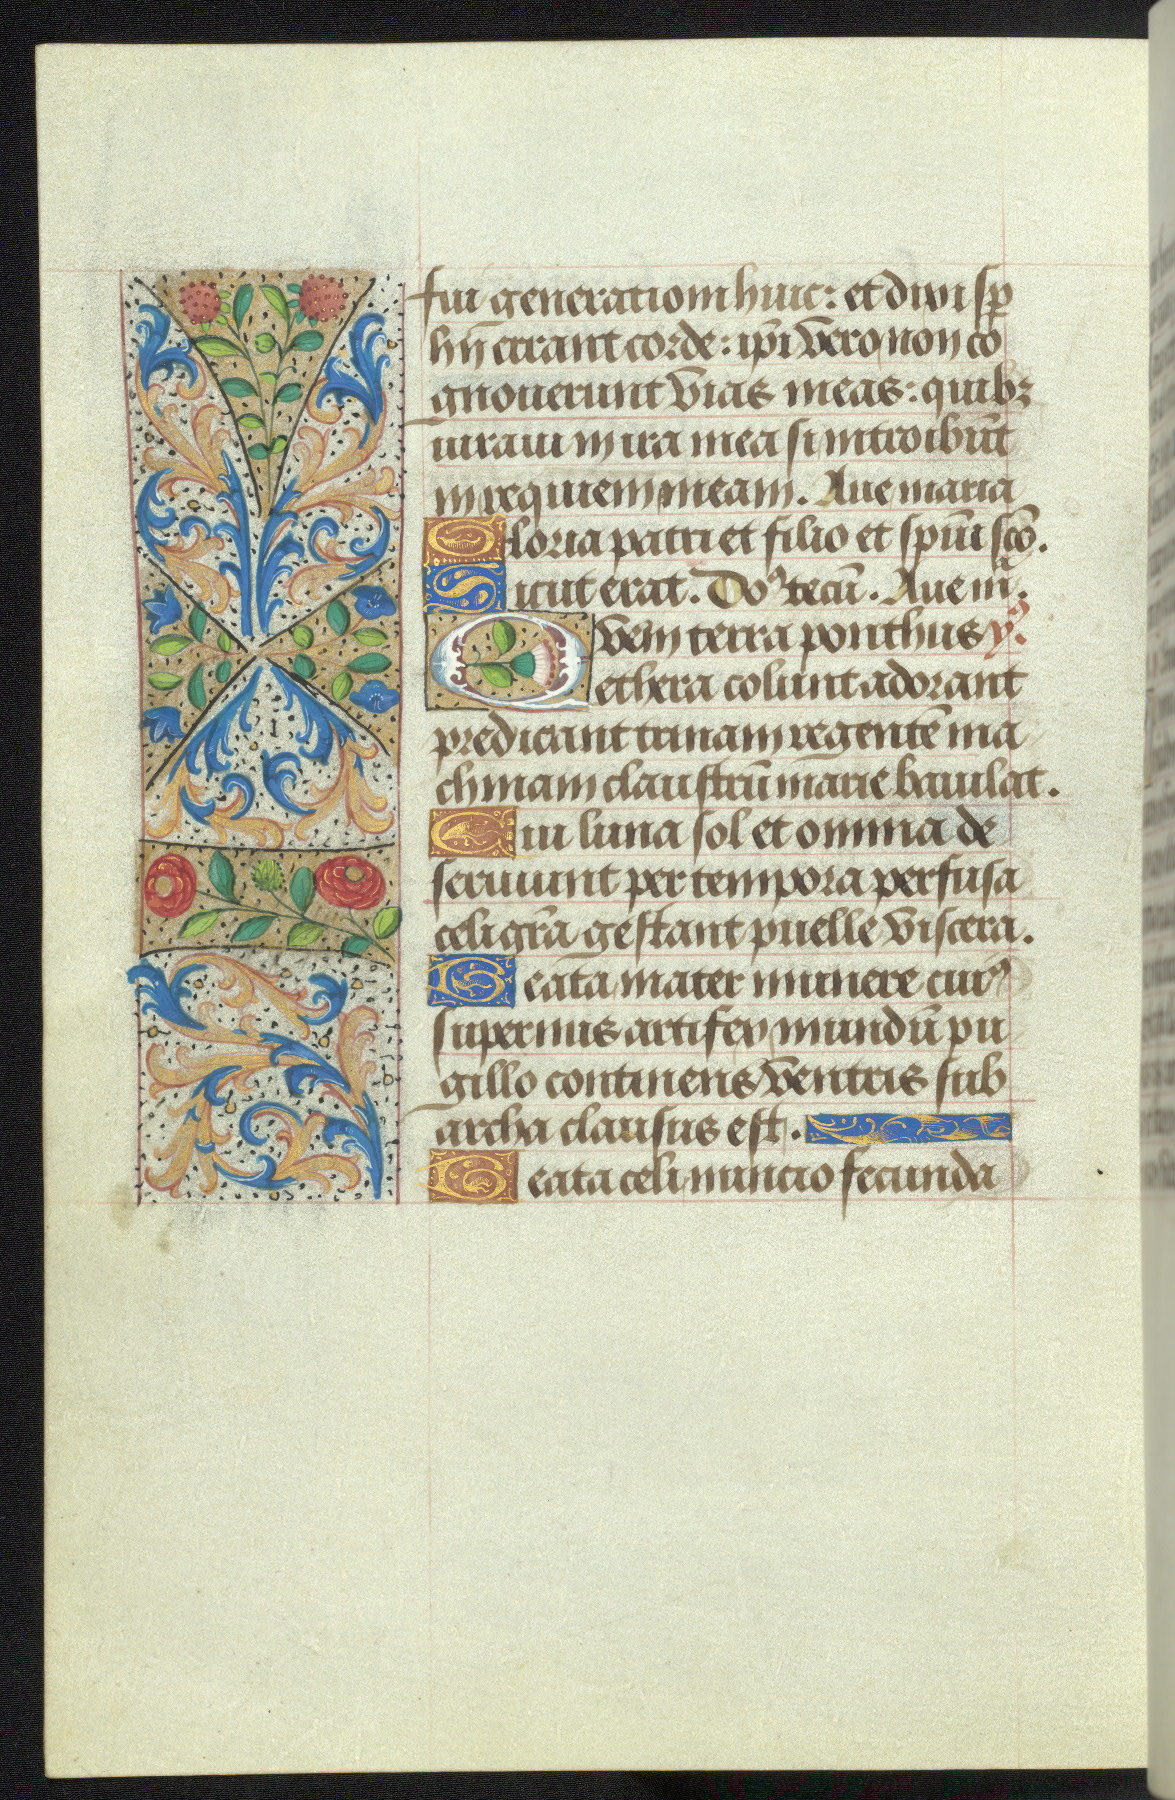 fui generationi huic: et dixi sp̱
hii errant corde: ip̄i vero non co
gnouerunt vias meas: quibꝫ
iuraui in ira mea si introibūt
in requiem meam. Aue maria
Gloria patri et filio et spūi scō.
Sicut erat. Dōs tecū. Aue m̄.
Quem terra ponthus y.
ethera colunt adorant
predicant trinam regentē ma
chinam claustrū marie baiulat.
Cui luna sol et omnia de
seruiunt per tempora perfusa
celi grā gestant puelle viscera.
Beata mater munere cuiꝰ
supernus artifex mundū pu
gillo continens ventris sub
archa clausus est.
Beata celi nuncio fecunda